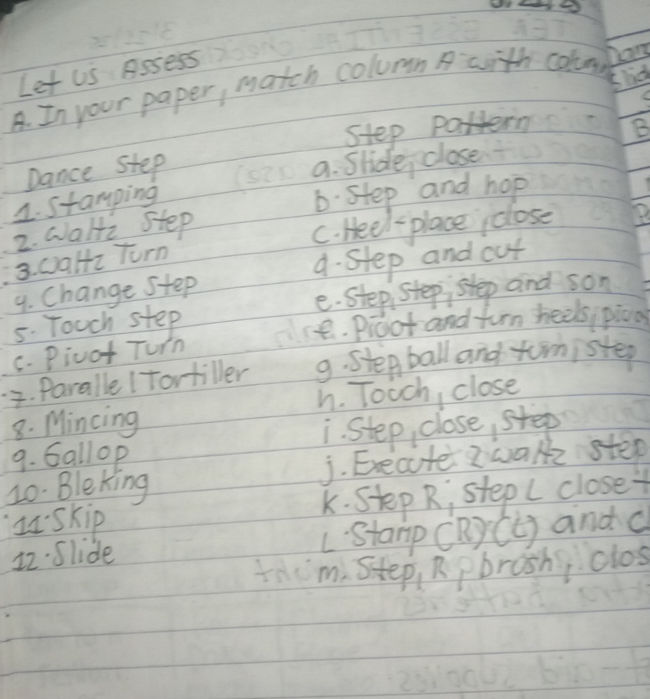 Let Us Assess
A. In your paper, match column A with column
Dance Step
Step Pattern
1. Stamping
a. Slide, close
2. Waltz Step
b. Step and hop
3. Waltz Turn
c. Heel-place, close
4. Change Step
d. Step and cut
5. Touch step
e. Step, Step, Step and son
6. Pivot Turn
Pivot and turn heels, pivot
7. Parallel Tortiller
g. Step, ball and turn, step
8. Mincing
h. Touch, close
9. Gallop
i. Step, close, Step
10. Bleking
j. Execute 2 waltz step
11. Skip
k. Step R, Step L close
12. Slide
L. Stamp (R) (L) and
m. Step, R, brush, clos